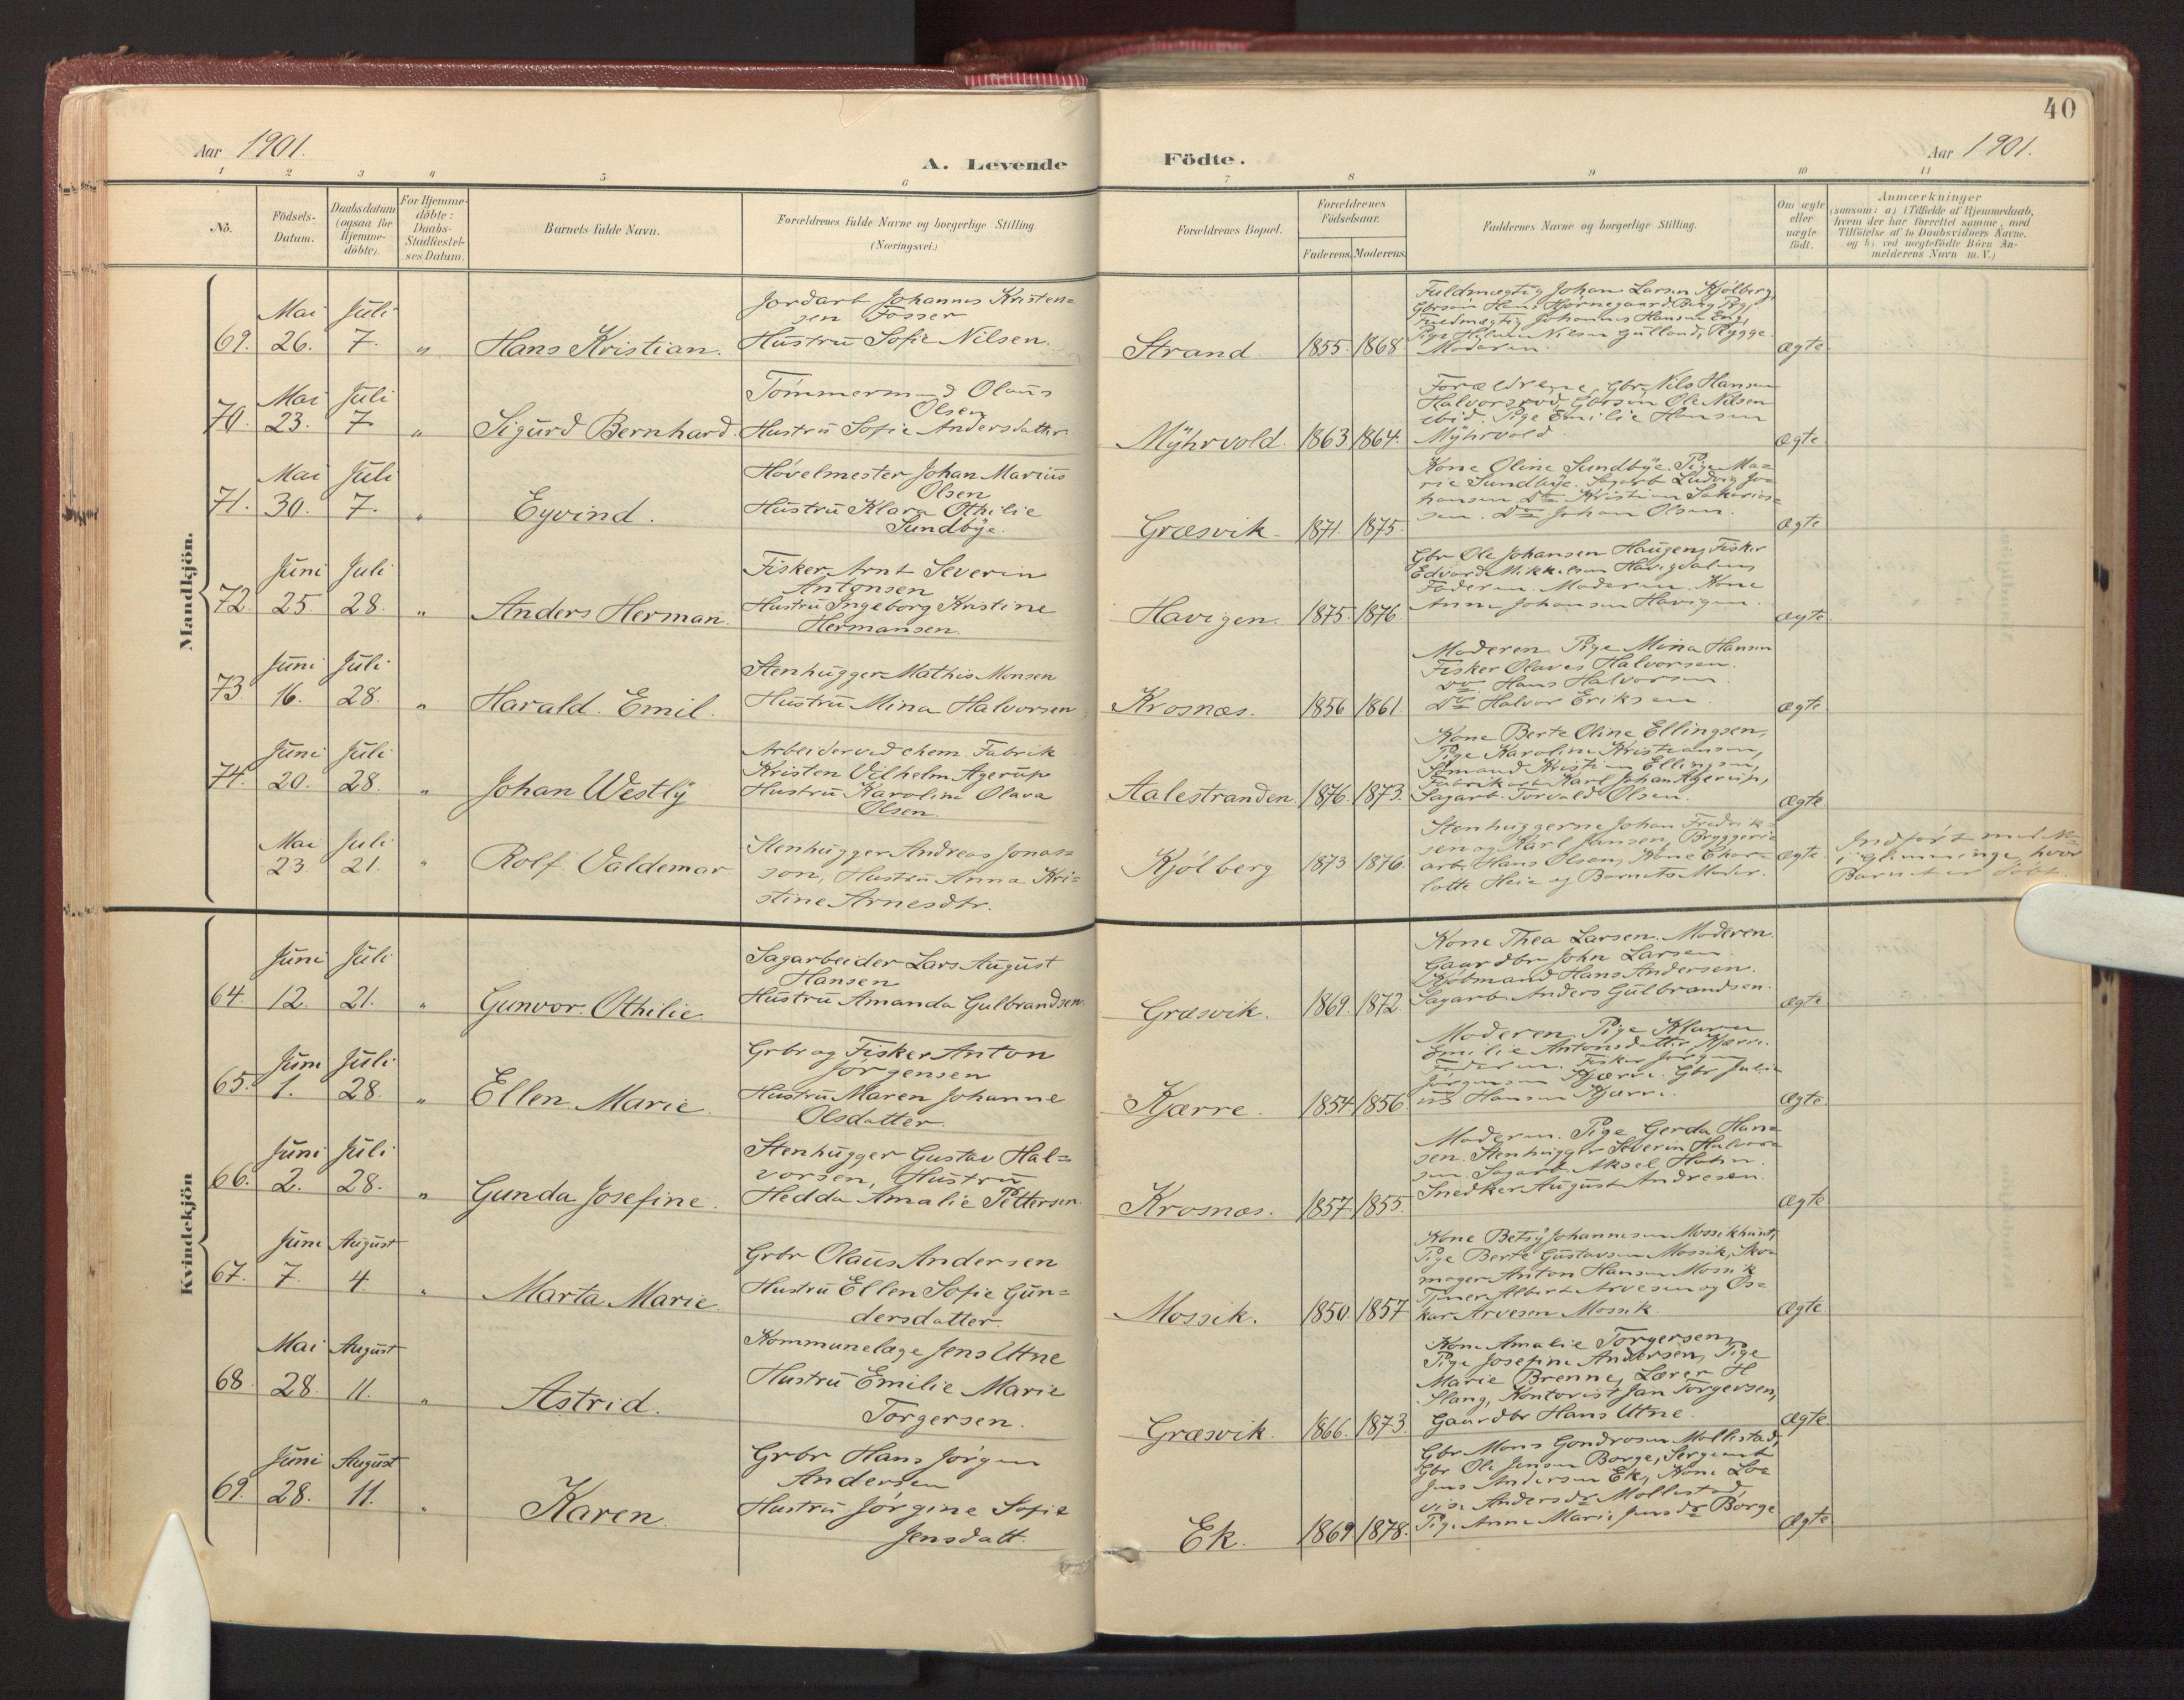 40
Aar 1901.
A. Levende
Födte.
Aar 1901.
1 2 3 4 5 6 7 8 9 10 11
Nö.
Födsels-Datum.
Daabsdatum (ogsaa for Hjemme-döbte).
For Hjemme-döbte: Daabs-Stadfæstel-ses Datum.
Barnets fulde Navn.
Forældrenes fulde Navne og borgerlige Stilling.
(Næringsvei.)
Forældrenes Bopæl.
Forældrenes Födselsaar.
Faderens. Moderens.
Faddernes Navne og borgerlige Stilling.
Om ægte eller uægte födt.
Anmærkninger
(saasom: a) i Tilfælde af Hjemmedaab,
hvem der har forrettet samme, med
Tilföielse af to Daabsvidners Navne.
og b) ved uægtefödte Börn An-
melderens Navn m.V.)
Mandkjön.
69. Mai 26. Juli 7. " Hans Kristian.
Jordarb Johannes Kristen=
sen Fosser
Hustru Sofie Nilsen.
Strand 1855. 1868
Fuldmægtig Johan Larsen Kjølberg,
Gbrsøn Hans Hjørnegaard Borg Pige
Fuldmægtig Johannes Hansen Eng,
Pige Helene Nilsen Gulland, Rygge
Moderen.
Ægte
70. Mai 23. Juli 7. " Sigurd Bernhard.
Tømmermand Olaus
Olsen
Hustru Sofie Andersdatter
Mÿhrvold. 1863 1864.
Forældrene, Gbr Nils Hansen
Halvorsrød, Gbrsøn Ole Nilsen
ibid. Pige Emilie Hansen
Mÿhrvold.
Ægte
71. Mai 30. Juli 7. " Eyvind.
Høvelmester Johan Marius
Olsen
Hustru Klara Othilie
Sundbÿe.
Græsvik. 1871. 1875.
Kone Oline Sundbÿe. Pige Ma=
rie Sundbÿe. Sagarb Ludvig Jo=
hansen. Do Kristian Sakarias=
sen. Do Johan Olsen.
Ægte
72. Juni 25. Juli 28. " Anders Herman.
Fisker Arnt Severin
Antonsen
Hustru Ingeborg Kristine
Hermansen.
Havigen. 1875. 1876.
Gbr Ole Johansen Haugen, Fisker
Edvard Mikkelsen Havigdalen,
Faderen. Moderen. Kone
Anne Johansen Havigen.
Ægte
73. Juni 16. Juli 28. " Harald Emil.
Stenhugger Mathis Monsen
Hustru Mina Halvorsen
Krosnæs. 1856 1861.
Moderen. Pige Mina Hansen
Fisker Olaves Halvorsen.
Do Hans Halvorsen
Do Halvor Eriksen
Ægte
74. Juni 20. Juli 28. " Johan Westlÿ
Arbeider ved chem. Fabrik
Kristen Vilhelm Agerup
Hustru Karoline Olava
Olsen.
Aalestranden. 1876. 1873.
Kone Berte Oline Ellingsen,
Pige Karoline Kristiansen,
Sømand Kristian Ellingsen,
Fabrikarb Karl Johan Agerup,
Sagarb. Torvald Olsen.
Ægte
Mai 23 Juli 21. " Rolf Valdemar
Stenhugger Andreas Jonas=
son, Hustru Anna Kri=
stine Arnesdtr.
Kjølberg 1873 1876.
Stenhuggerne Johan Fredrik=
sen og Karl Jansen, Bryggeri=
arb. Hans Olsen, Kone Char=
lotte Heie og Barnets Moder.
Ægte
Indført med No
i Glemminge, hvor
Barnet er døbt.
Kvindekjön
64. Juni 12. Juli 21. " Gunvor Othilie.
Sagarbeider Lars August
Hansen
Hustru Amanda Gulbrandsen.
Græsvik. 1869. 1872
Kone Thea Larsen. Moderen.
Gaardbr John Larsen.
Kjøbmand Hans Andersen.
Sagarb. Anders Gulbrandsen.
Ægte
65. Juni 1. Juli 28. " Ellen Marie.
Grbr og Fisker Anton
Jørgensen
Hustru Maren Johanne
Olsdatter.
Kjærre. 1854. 1856
Moderen. Pige Klara
Emilie Antonsdatter Kjærre.
Faderen. Fisker Jørgen
Jørgensen Kjærre. Gbr Juli=
us Hansen Kjærre.
Ægte
66. Juni 2. Juli 28. " Gunda Josefine.
Stenhugger Gustav Hal=
vorsen, Hustru
Hedda Amalie Pettersen.
Krosnæs. 1857. 1855.
Moderen. Pige Gerda Han=
sen. Stenhugger Severin Halvor=
sen. Sagarb. Aksel Holm.
Snedker August Andresen.
Ægte
67. Juni 7. August 4. " Marta Marie.
Grbr Olaus Andersen
Hustru Ellen Sofie Gun=
dersdatter.
Mossik. 1850. 1857
Kone Betsÿ Johannesen Mossik
Pige Berte Gustavsen Mossik, Sko=
mager Anton Hansen Mossik
Tjener Albert Arvesen og Os=
kar Arvesen Mossik.
Ægte
68. Mai 28. August 11. " Astrid.
Kommunelæge Jens Utne
Hustru Emilie Marie
Torgersen.
Græsvik. 1866. 1873.
Kone Amalie Torgersen,
Pige Josefine Andersen, Pige
Marie Brenne, Lærer H
Slang, Kontorist Jan Torgersen,
Gaardbr Hans Utne.
Ægte
69. Juni 28. August 11. " Karen.
Grbr Hans Jørgen
Andersen
Hustru Jørgine Sofie
Jensdatt.
Ek. 1869. 1878.
Gbr Mons Gundrosen Mollestad,
Gbr Ole Jensen Borge, Sergeant
Jens Andersen Ek, Kone Lo=
vise Andersdr Mollestad,
Pige Anne Marie Jensdr Borge
Ægte